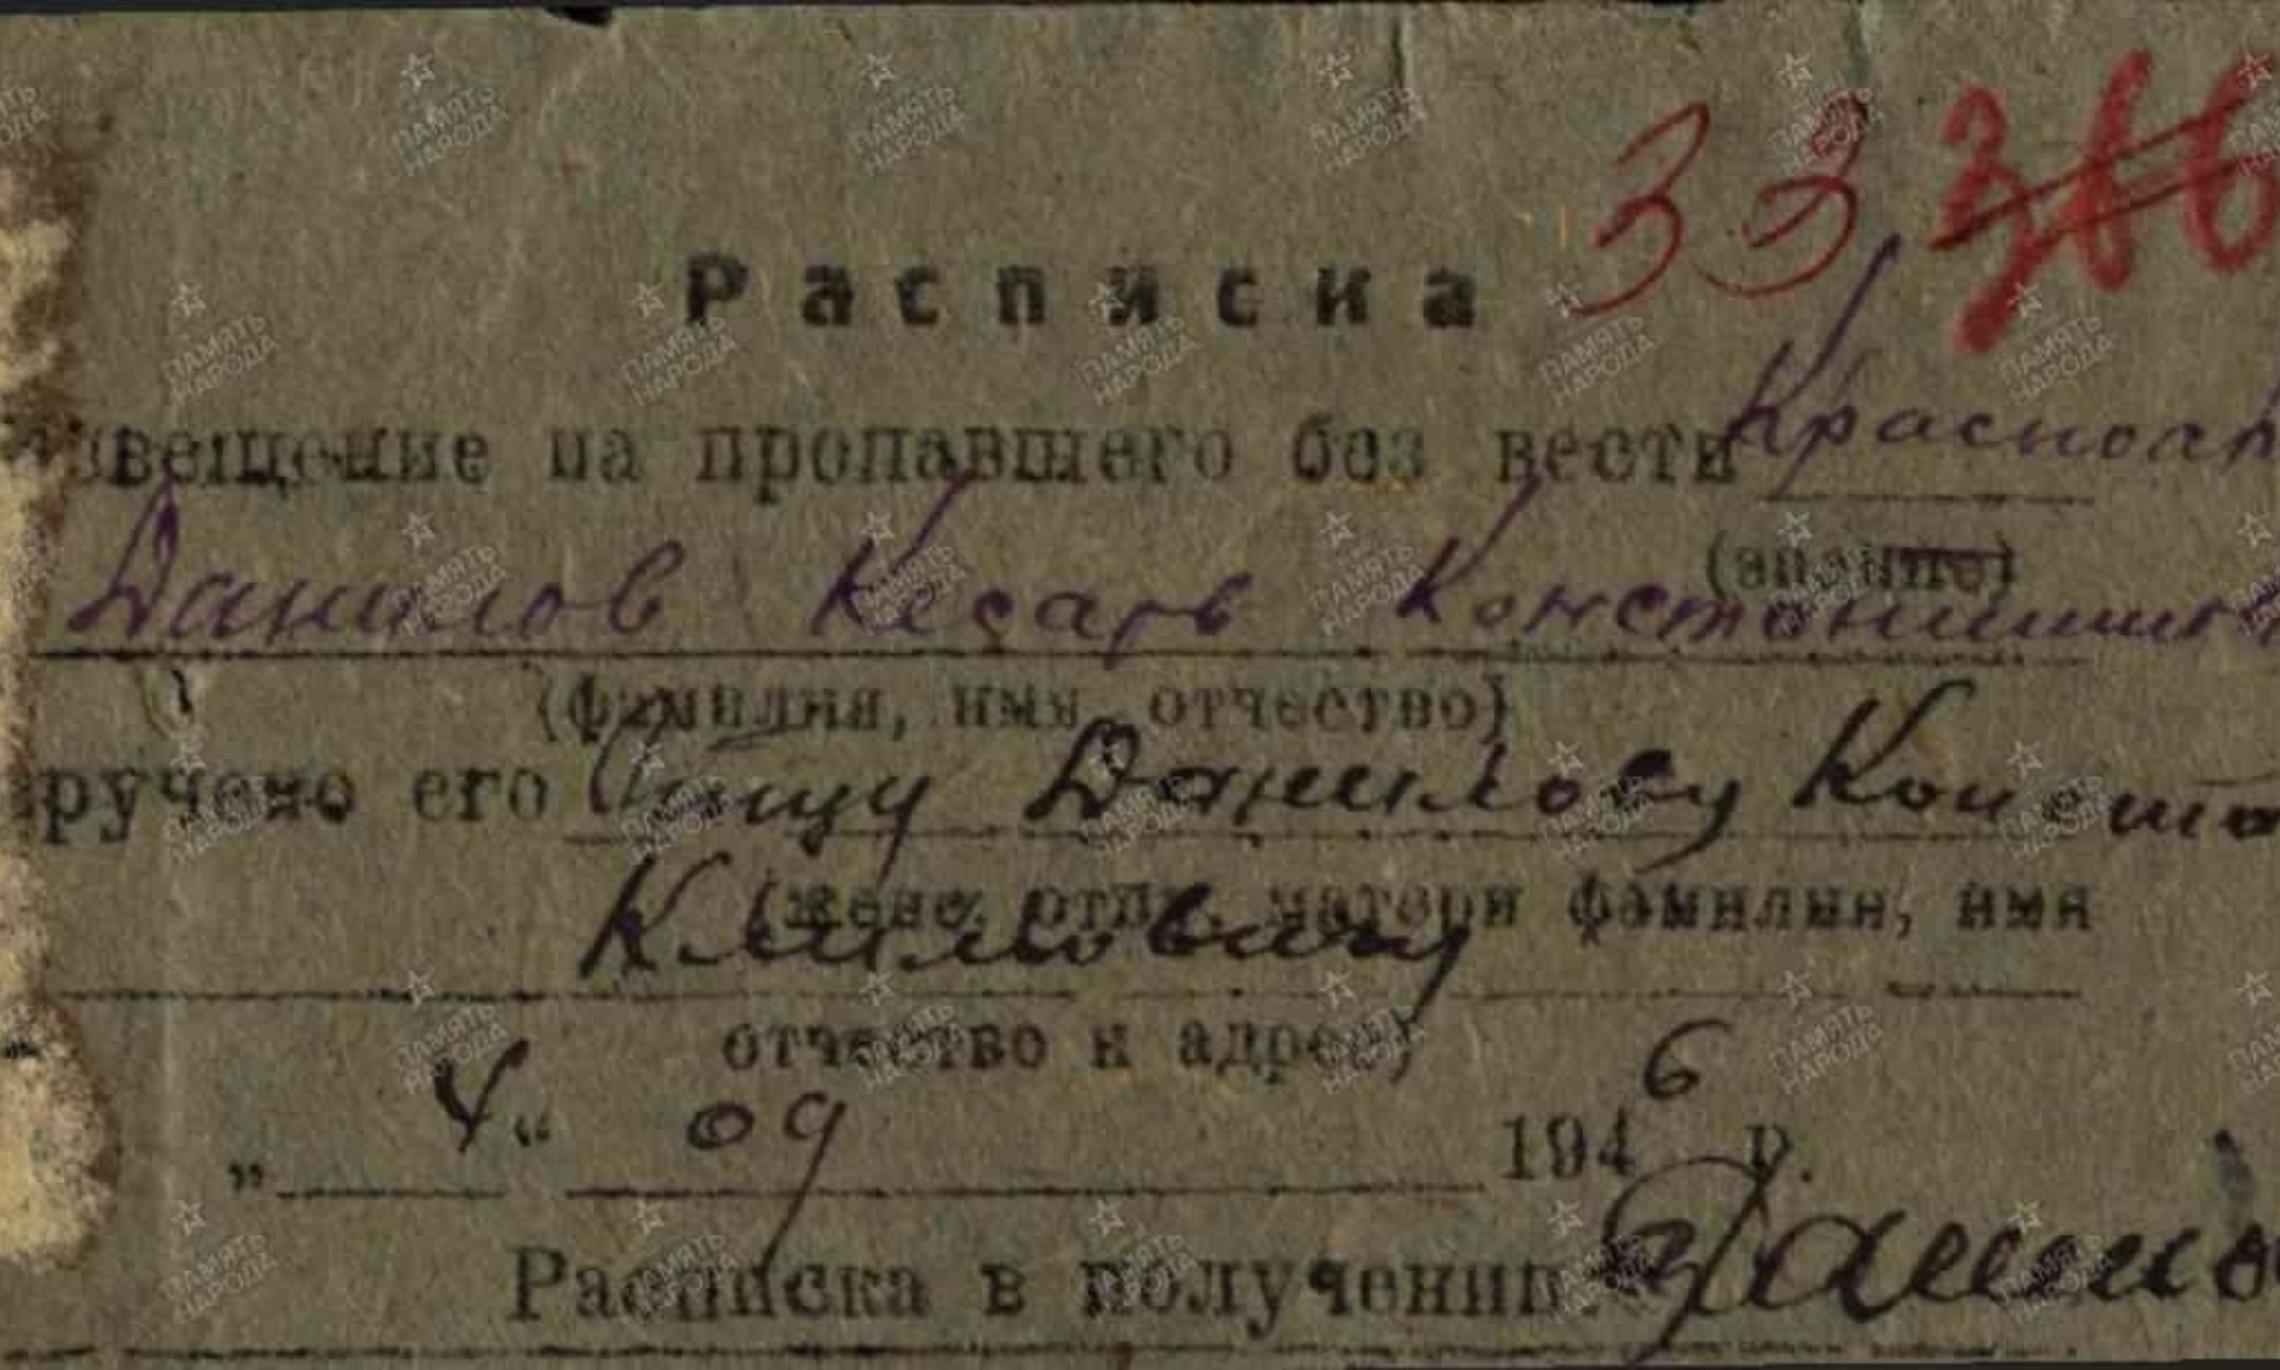 33 366
Расписка
звещение на пропавшего без вести Красноар
(звание)
Данилов Кесарь Константинов
(фамилия, имя, отчество)
ручено его Отцу Данилову Конста
(жене, отцу, матери фамилия, имя
Климовичу
отчество и адрес)
„ 4 “ 09 1946 г.
Расписка в получении Данило
ПАМЯТЬ НАРОДА